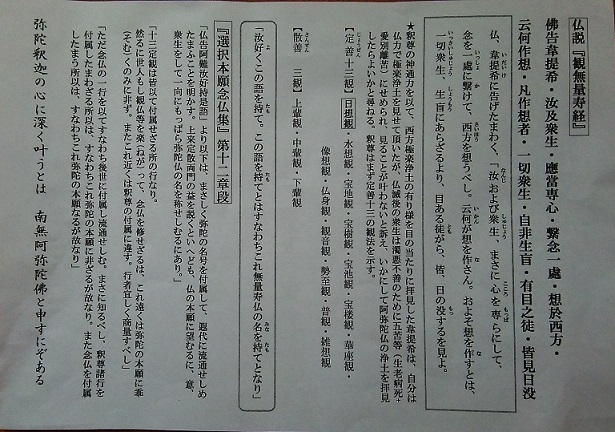 仏説『観無量寿経』
佛告韋提希・汝及衆生・應當専心・繫念一處・想於西方・
云何作想・凡作想者・一切衆生・自非生盲・有目之徒・皆見日没
仏、韋提希に告げたまわく、「汝および衆生、まさに心を専らにして、
念を一處に繫けて、西方を想うべし。云何が想を作さん。およそ想を作すとは、
一切衆生、生盲にあらざるより、目ある徒がら、皆、日の没するを見よ。
★釈尊の神通力を以て、西方極楽浄土の有り様を目の当たりに拝見した韋提希は、自分は
仏力で極楽浄土を見せて頂いたが、仏滅後の衆生は濁悪不善のために五苦等（生老病死+
愛別離苦）にせめられ、見ることが叶わないと訴え、いかにして阿弥陀仏の浄土を拝見
したらよいかと尋ねる。釈尊はまず定善十三の観法を示す。
【定善十三観】日想観・水想観・宝地観・宝樹観・宝池観・宝楼観・華座観・
像想観・仏身観・観音観・勢至観・普観・雑想観
【散善 三観】上輩観・中輩観・下輩観
「汝好くこの語を持て、この語を持てとはすなわちこれ無量寿仏の名を持てとなり」
『選択本願念仏集』第十二章段
「仏告阿難汝好持是語」より以下は、まさしく弥陀の名号を付属して、遐代に流通せしめ
たまふことを明かす。上来定散両門の益を説くといへども、仏の本願に望むるに、意、
衆生をして一向にもっぱら弥陀仏の名を称せしむるにあり。」
「十三定観は皆以て付属せざる所の行なり。
然るに世人もし観仏等を楽（ねが）って、念仏を修せざるは、これ遠くは弥陀の本願に乖
（そむ）くのみに非ず。またこれ近くは釈尊の付属に違す。行者宜しく商量すべし」
「ただ念仏の一行を以てすなわち後世に付属し流通せしむ。まさに知るべし、釈尊諸行を
付属したまわざる所以は、すなわちこれ弥陀の本願に非ざるが故なり。また念仏を付属
したまう所以は、すなわちこれ弥陀の本願なるが故なり」
弥陀釈迦の心に深く叶うとは 南無阿弥陀佛と申すにぞある